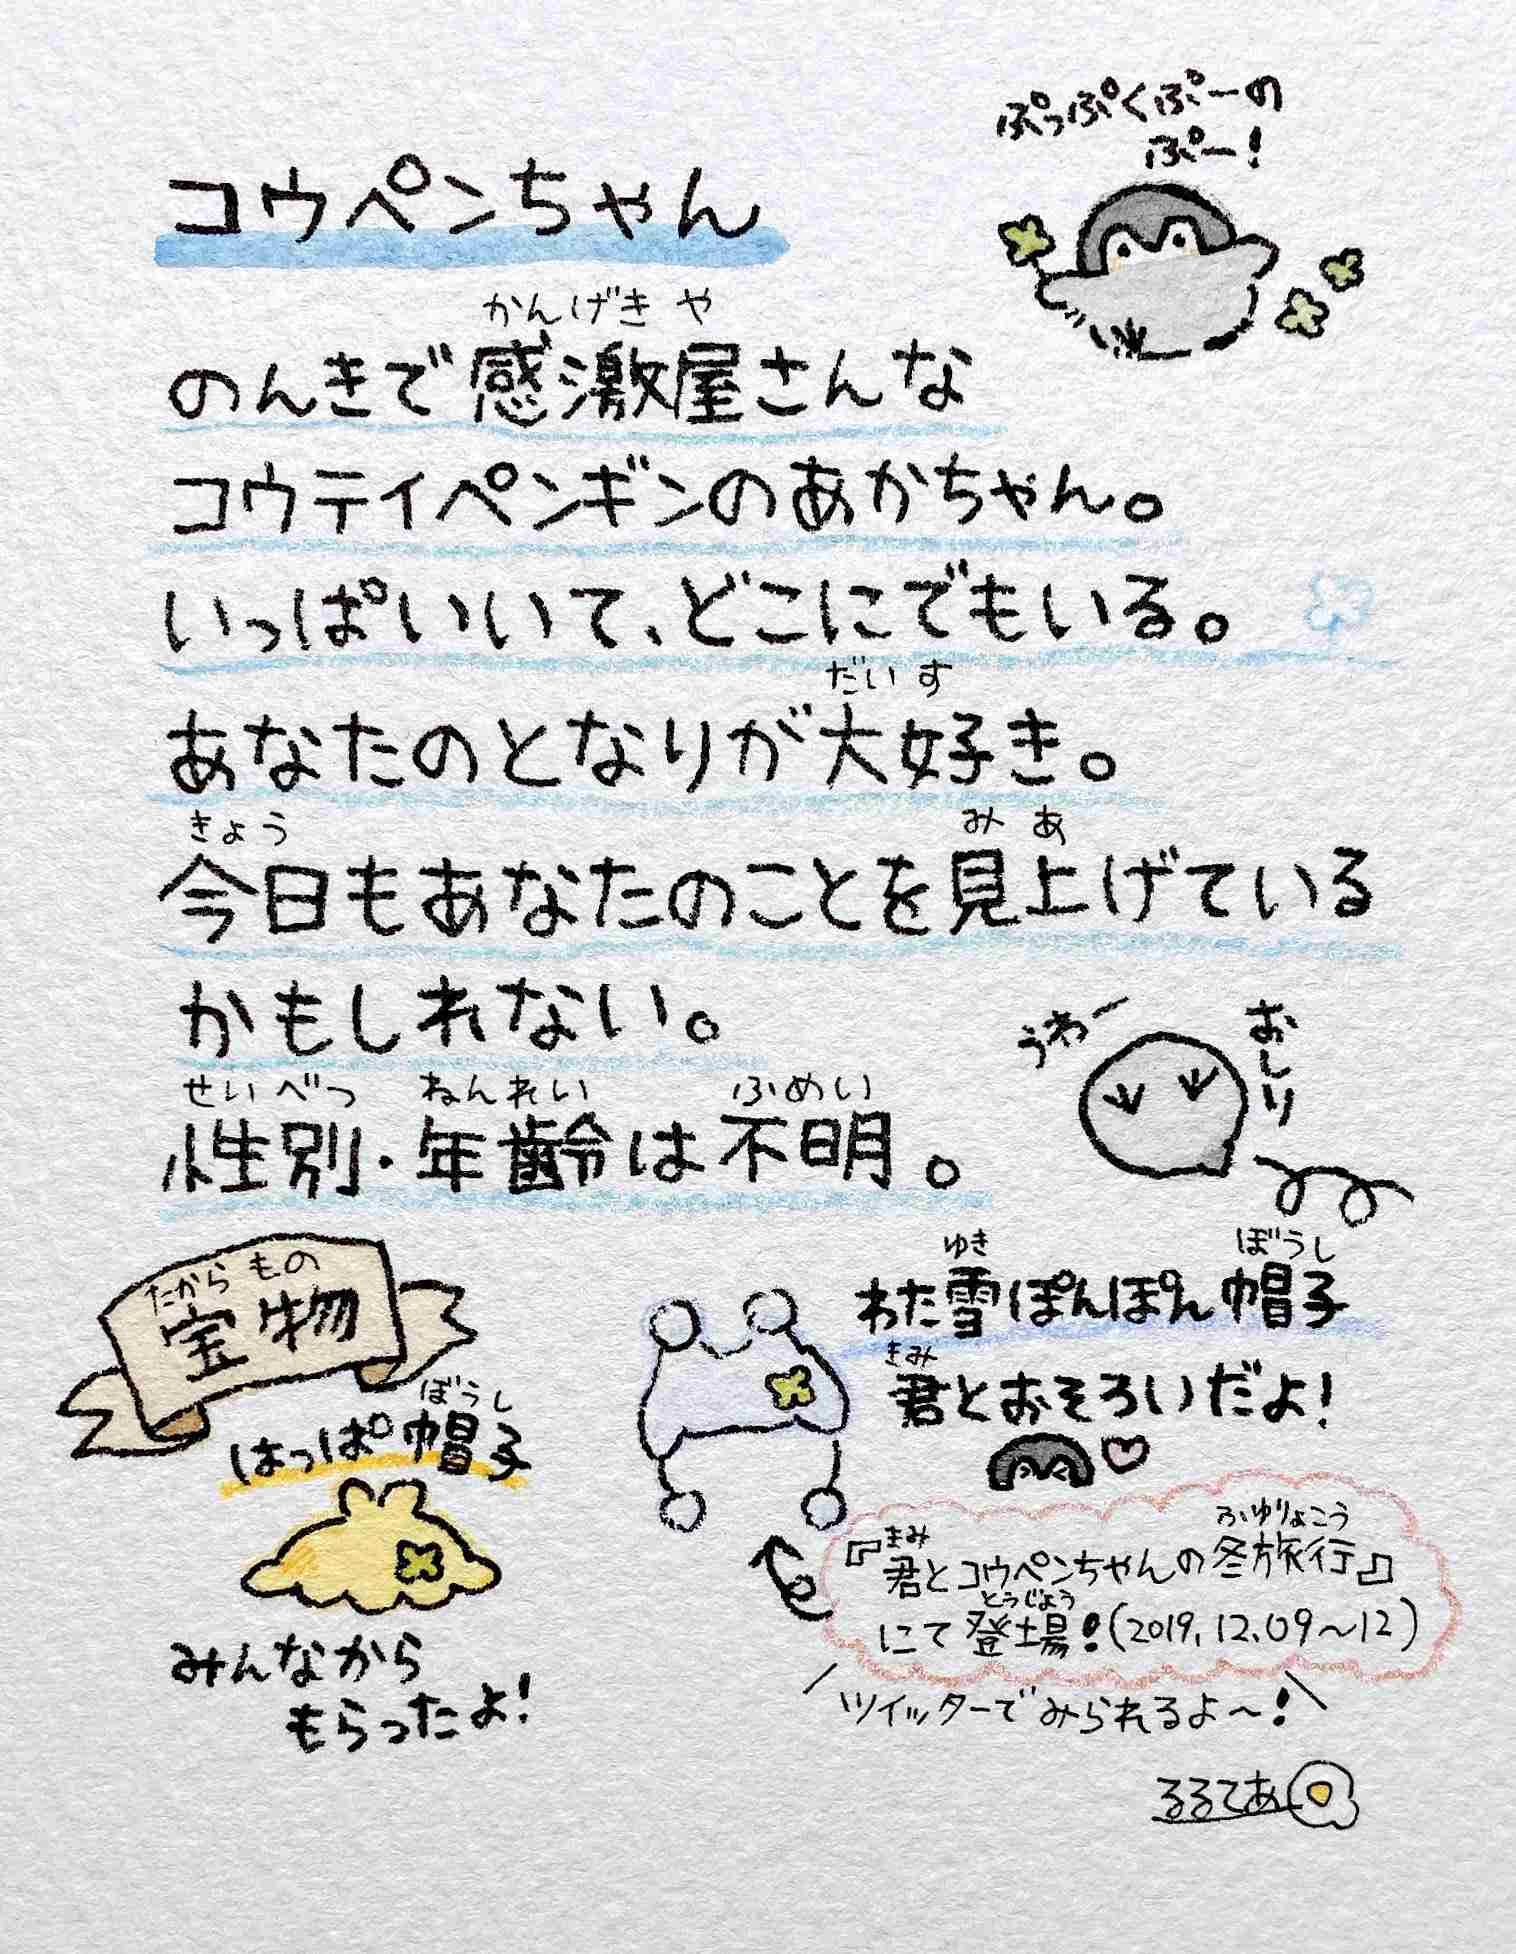 ぷっぷくぷーの
ぷー!
コウペンちゃん
かんげきや
のんきで感激屋さんな
コウテイペンギンのあかちゃん。
いっぱいいて、どこにでもいる。
だいす
あなたのとなりが大好き。
きょう みあ
今日もあなたのことを見上げている
かもしれない。
うわー
おしり
せいべつ ねんれい ふめい
性別・年齢は不明。
たからもの
宝物
ぼうし
はっぱ帽子
みんなから
もらったよ!
ゆき ぼうし
わた雪ぽんぽん帽子
きみ
君とおそろいだよ!
きみ ふゆりょこう
『君とコウペンちゃんの冬旅行』
とうじょう
にて登場!(2019.12.09~12)
ツイッターでみられるよ~!
るるてあ